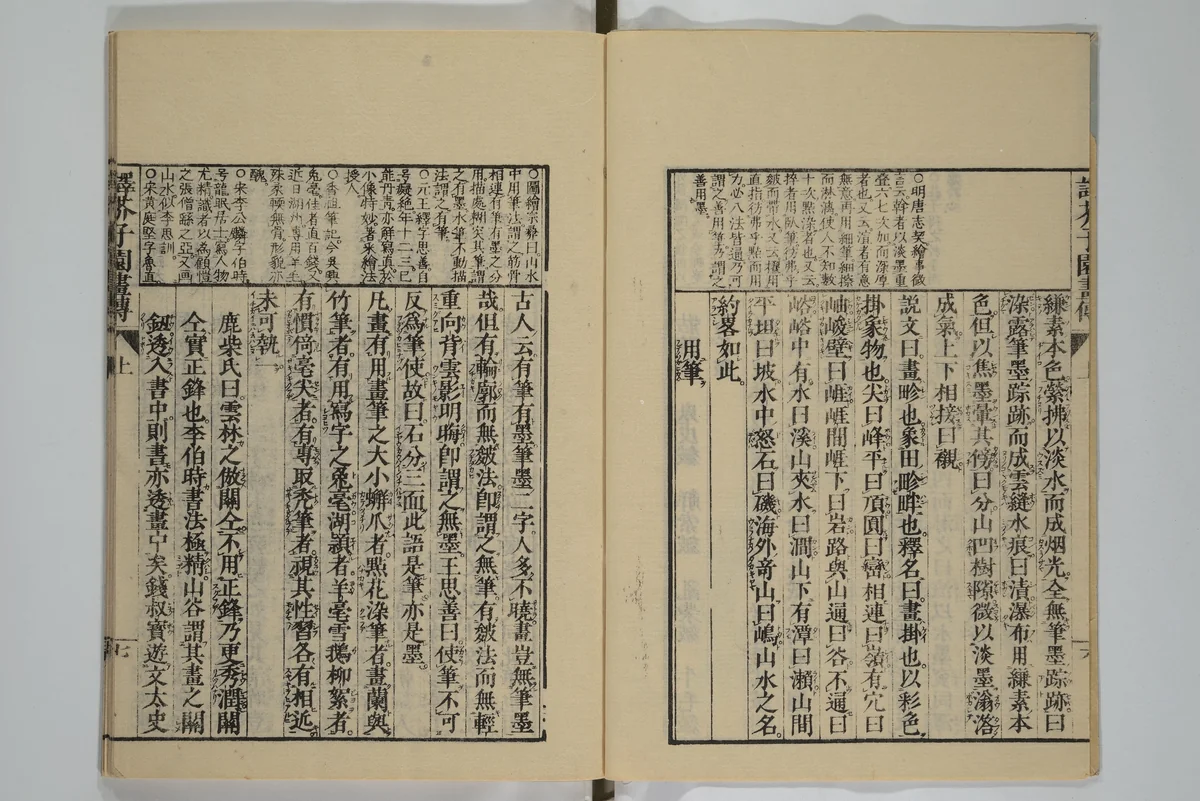 ○明唐志契繪事微
言云幹者以淡墨重
疊六七次加而深厚
者也又云渲者有意
無意再用細筆細擦
而淋漓使人不知數
十次點染者也又云
捽者用臥筆彷彿乎
皴而帶水又云擢用
直指彷彿乎點而用
力必八法皆通乃可
謂之善用筆乃謂之
善用墨
縑素本色縈拂以淡水而成烟光全無筆墨踪跡曰
染露筆墨踪跡而成雲縫水痕曰漬瀑布用縑素本
色但以焦墨暈其傍曰分山凹樹隙微以淡墨滃溶
成氣上下相接曰襯
說文曰畫畛也象田畛畔也釋名曰畫掛也以彩色
掛象物也尖曰峰平曰頂圓曰巒相連曰嶺有穴曰
岫峻壁曰崖崖間崖下曰岩路與山通曰谷不通曰
峪峪中有水曰溪山夾水曰澗山下有潭曰瀨山間
平坦曰坡水中怒石曰磯海外奇山曰島山水之名
約畧如此
用筆
○圖繪宗彞曰山水
中用筆法謂之筋骨
相連有筆有墨之分
用描處糊突其筆謂
之有墨水筆不動描
法謂之有筆
○元王繹字思善自
號癡絕年十二三已
能丹青亦解寫真於
小像特妙著采繪法
授人
○香祖筆記今吳興
兔毫佳者直百錢又
近日湖州專用羊毛
殊柔軟無骨形貌亦
醜
○宋李公麟字伯時
號龍眠居士寫人物
尤精識者以為顧愷
之張僧繇之亞又畫
山水似李思訓
○宋黃庭堅字魯直
古人云有筆有墨筆墨二字人多不曉畫豈無筆墨
哉但有輪廓而無皴法卽謂之無筆有皴法而無輕
重向背雲影明晦卽謂之無墨王思善曰使筆不可
反為筆使故曰石分三面此語是筆亦是墨
凡畫有用畫筆之大小蟹爪者點花染筆者畫蘭與
竹筆者有用寫字之兔毫湖穎者羊毫雪鵝柳絮者
有慣倍毫尖者有專取禿筆者視其性習各有相近
未可執一
鹿柴氏曰雲林之倣關仝不用正鋒乃更秀潤關
仝實正鋒也李伯時書法極精山谷謂其畫之關
鈕透入書中則書亦透畫中矣錢叔寶遊文太史
芥子園畫傳
上
七
六